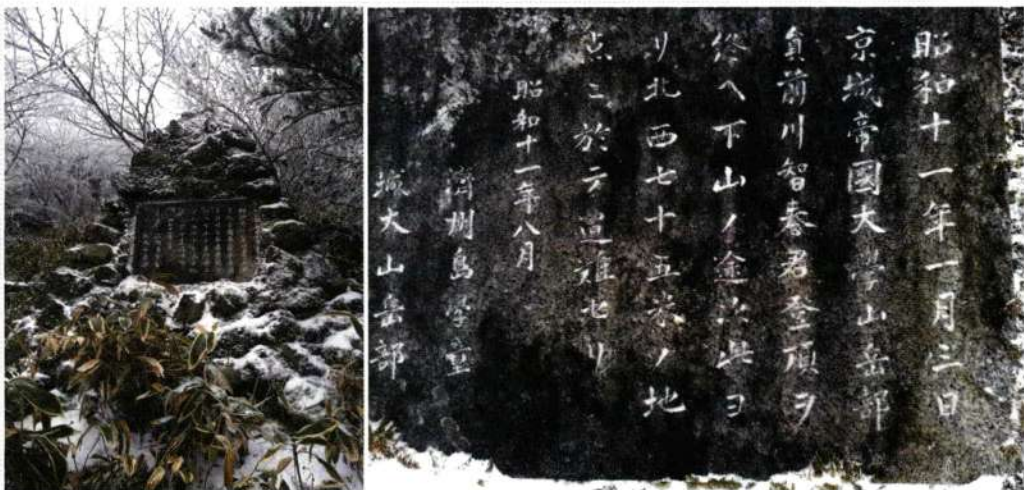 昭和十一年一月三日
京城帝國大學山岳部
員前川智春君登頂ヲ
終ヘ下山ノ途次此ヨ
リ北西七十五米ノ地
点ニ於テ遭難セリ
昭和十一年八月
濟州島
城大山岳部